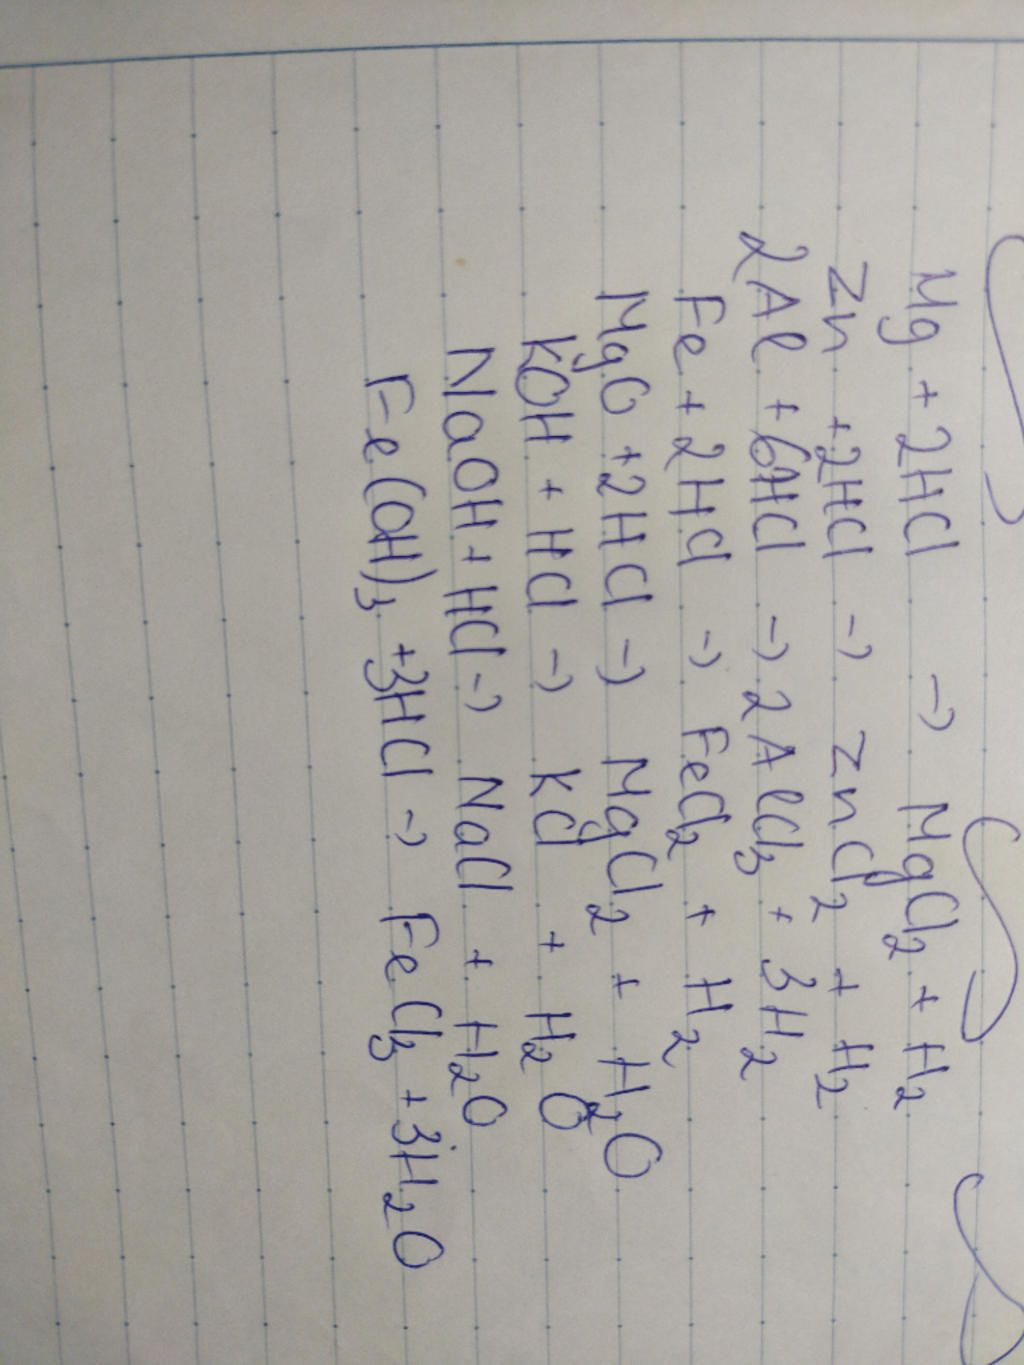 Mg + 2HCl → MgCl₂ + H₂
Zn + 2HCl → ZnCl₂ + H₂
2Al + 6HCl → 2AlCl₃ + 3H₂
Fe + 2HCl → FeCl₂ + H₂
MgO + 2HCl → MgCl₂ + H₂O
KOH + HCl → KCl + H₂O
NaOH + HCl → NaCl + H₂O
Fe(OH)₃ + 3HCl → FeCl₃ + 3H₂O